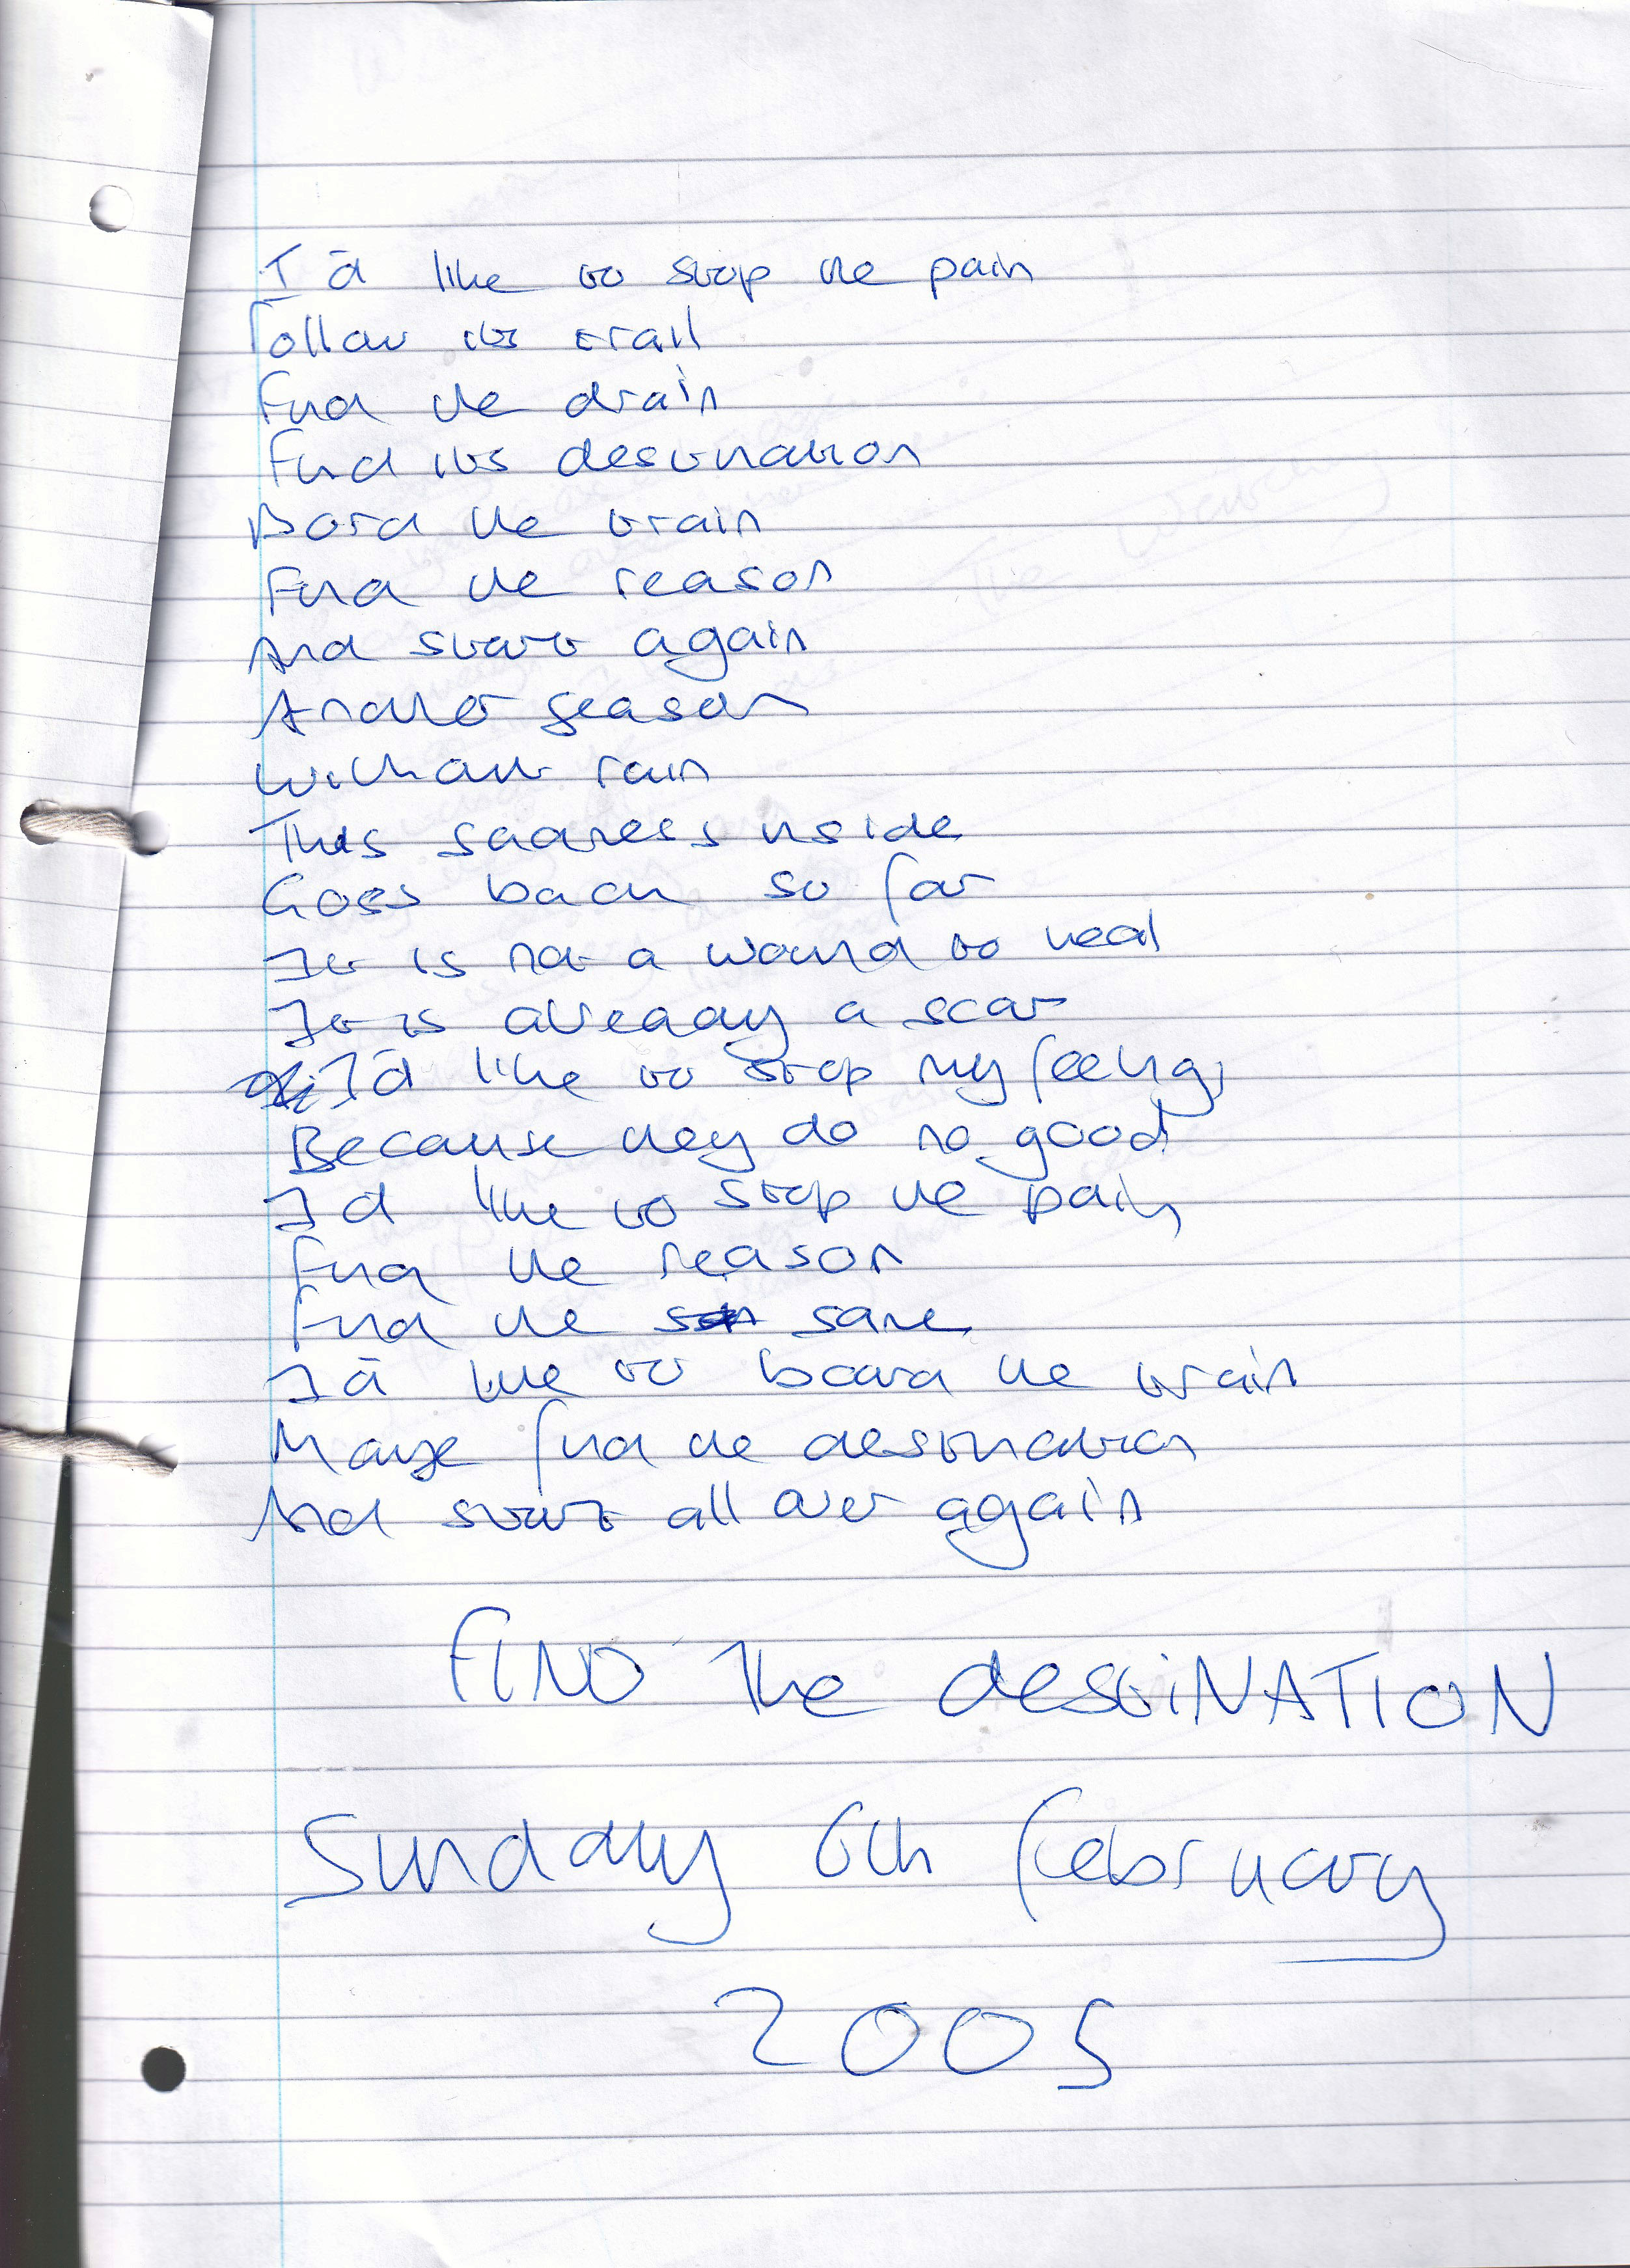 I'd like to stop the pain
Follow its trail
Find the drain
Find its destination
Bord the train
Find the reason
And start again
Another season
Without rain
This sadness inside
Goes back so far
It is not a wound to heal
It is already a scar
I'd like to stop my feelings
Because they do no good
I'd like to stop the pain
Find the reason
Find the same
I'd like to board the train
Maybe find the destination
And start all over again
FIND The destiNATION
Sunday 6th february
2005